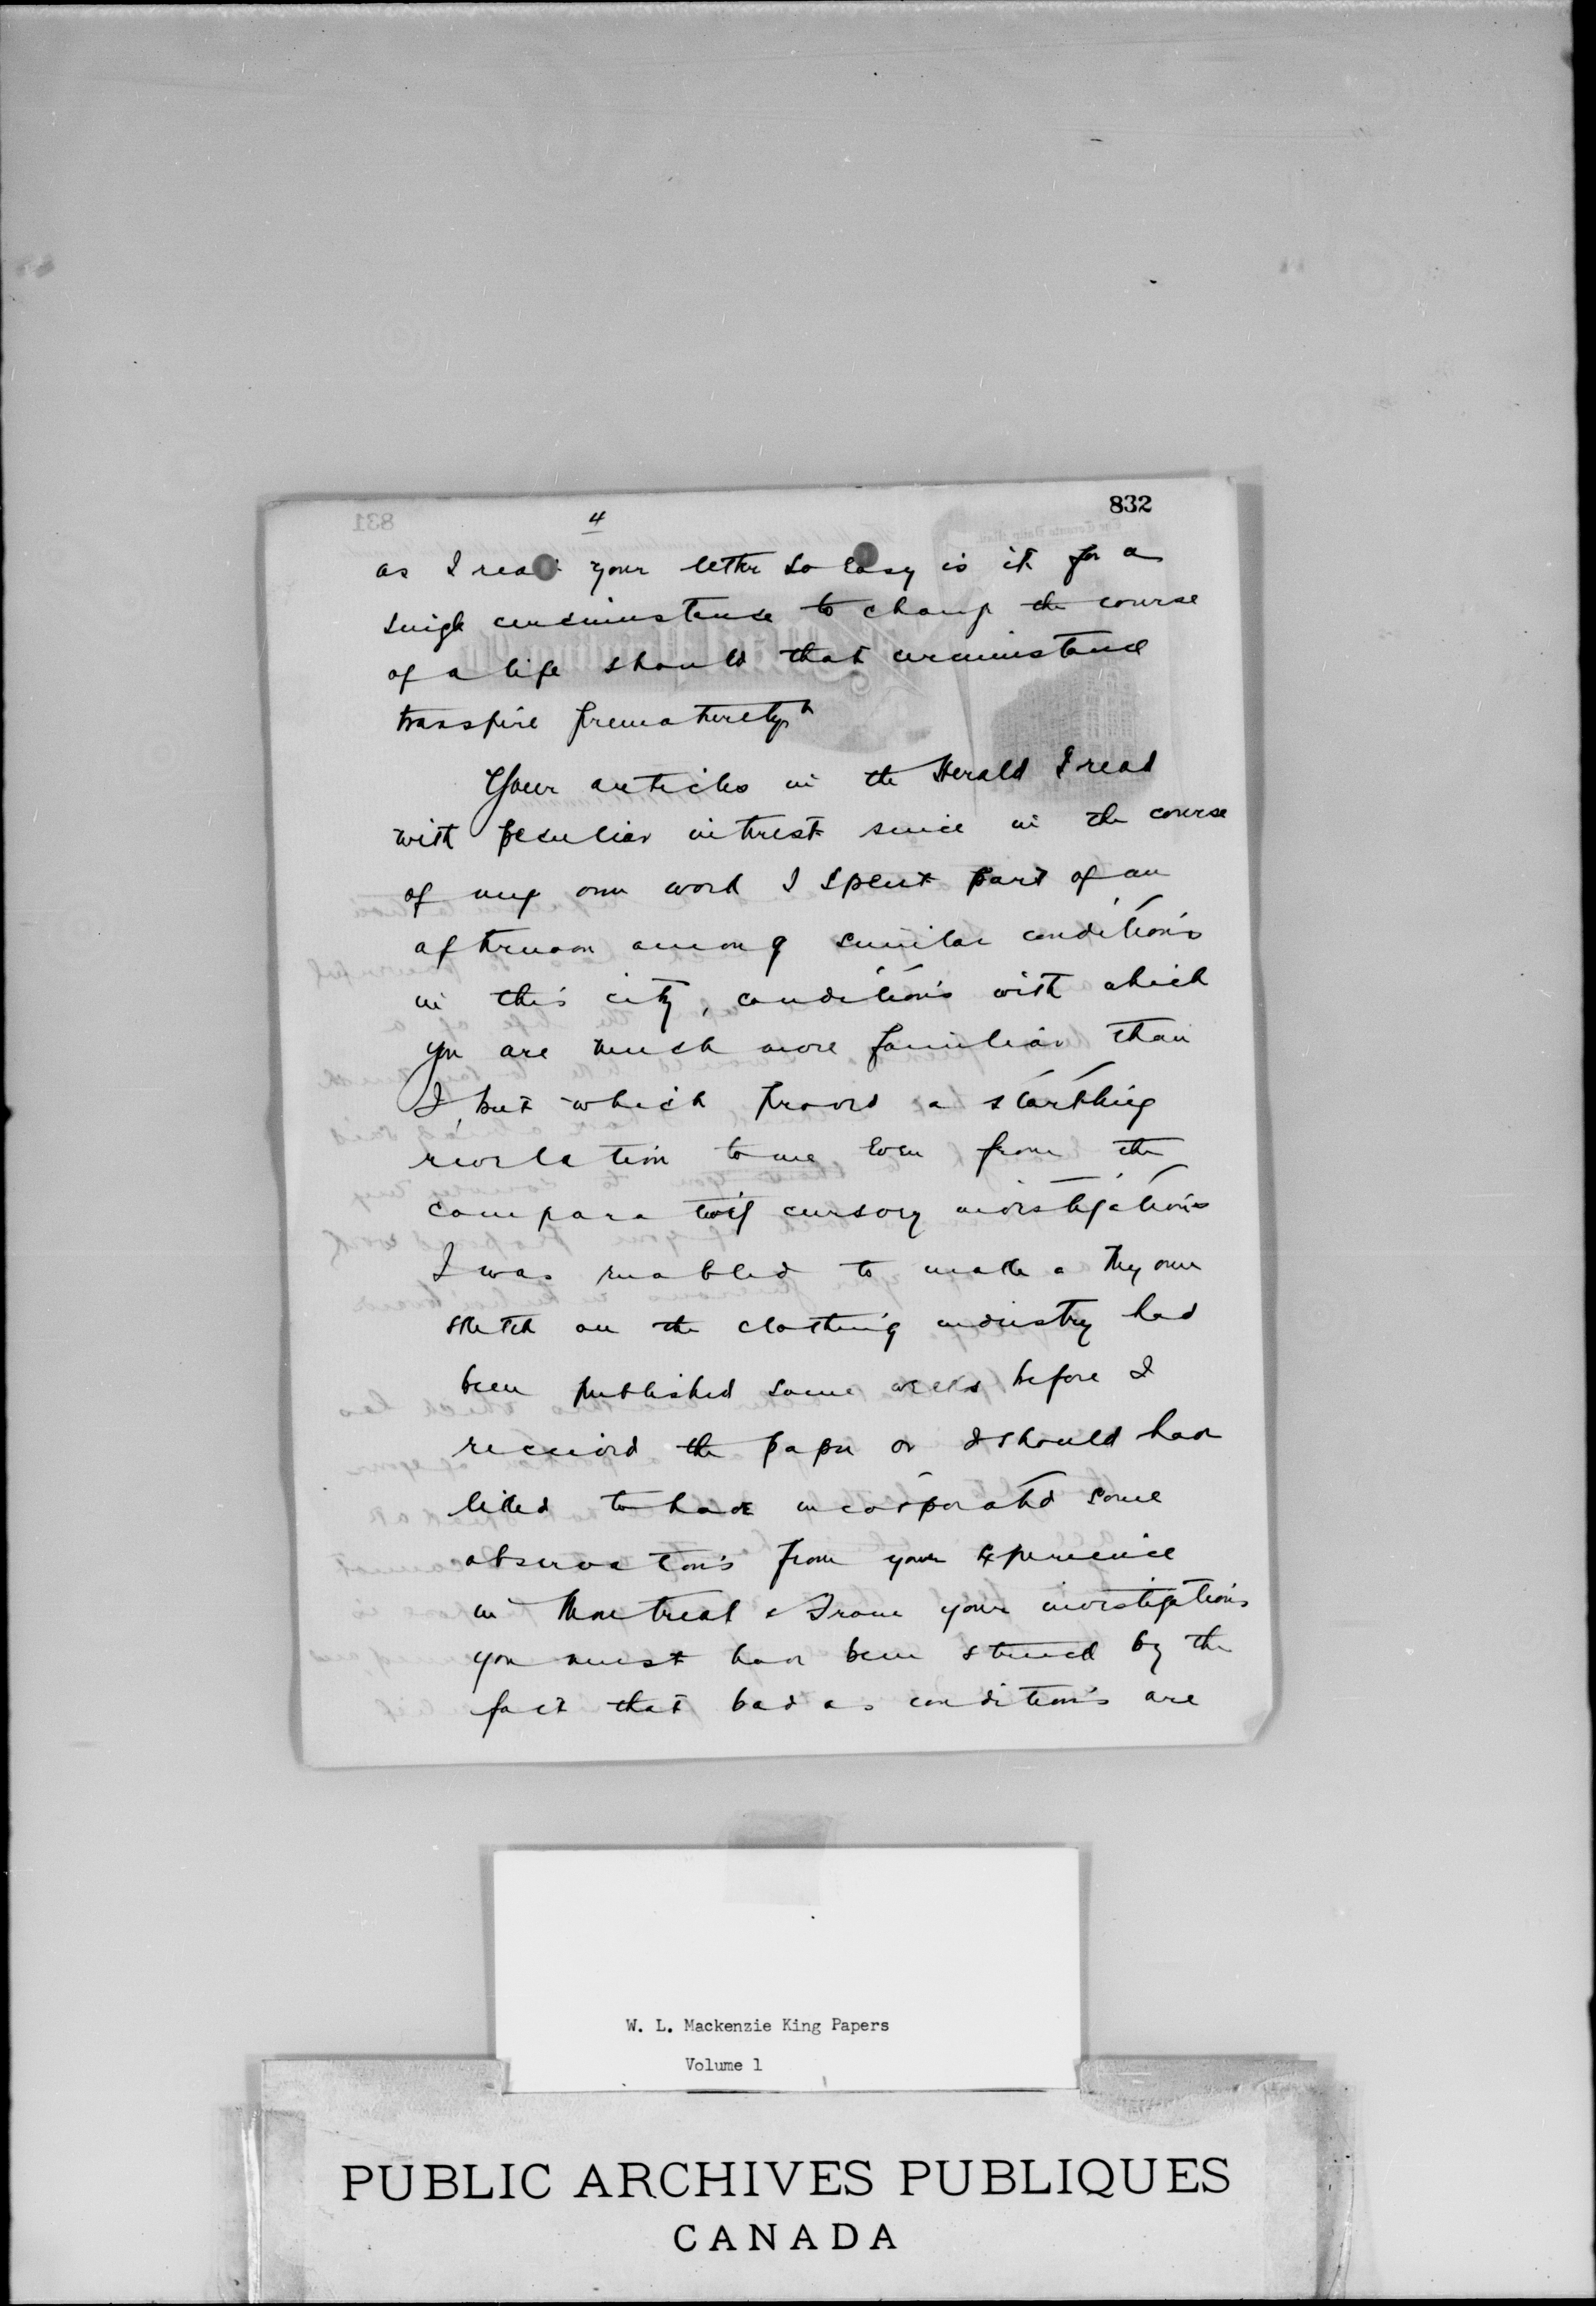 832
4
as I read your letter so easy is it for a
single circumstance to change the course
of a life should that circumstance
transpire prematurely"
Your articles in the Herald I read
with peculiar interest since in the course
of my own work I spent part of an
afternoon among similar conditions
in this city, conditions with which
you are much more familiar than
I, but which proved a startling
revelation to me even from the
comparatively cursory investigations
I was enabled to make. My own
sketch on the clothing industry had
been published some weeks before I
received the paper or I should have
liked to have incorporated some
observations from your experience
in Montreal. From your investigations
you must have been struck by the
fact that bad as conditions are
W. L. Mackenzie King Papers
Volume 1
PUBLIC ARCHIVES PUBLIQUES
CANADA